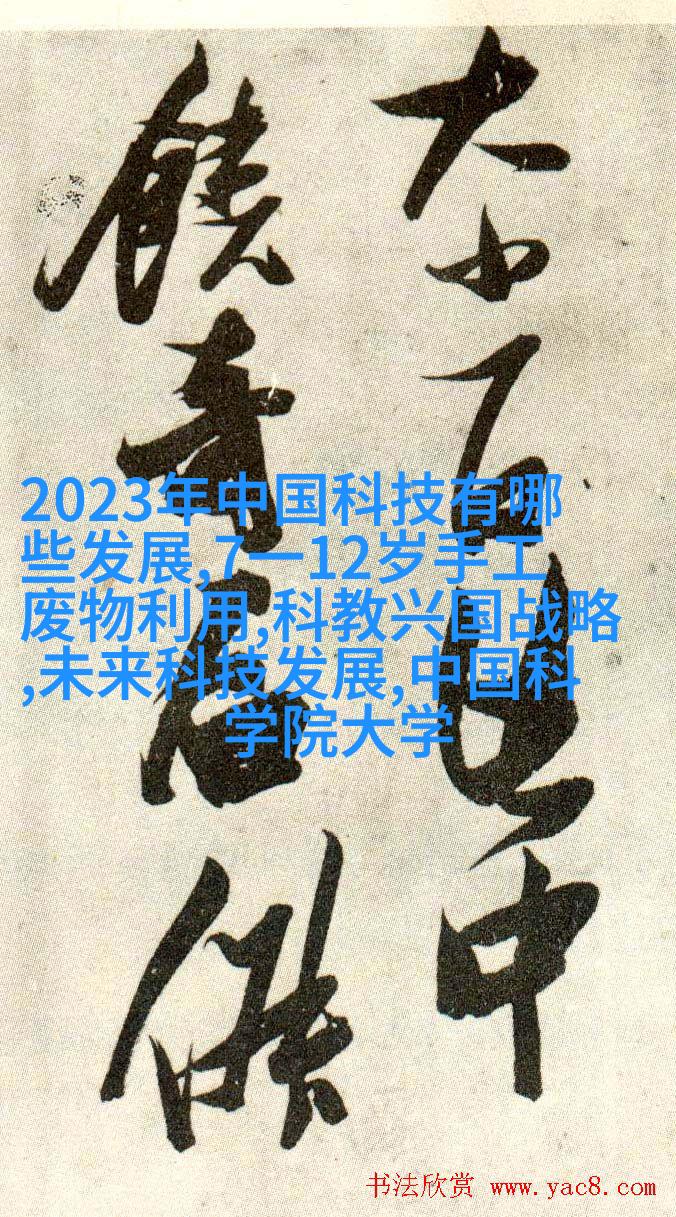 大小百世中
饶奇石供
2023年中国科技有哪
些发展,7一12岁手工
废物利用,科教兴国战略
,未来科技发展,中国科
学院大学
书法欣赏 www.yac8.com